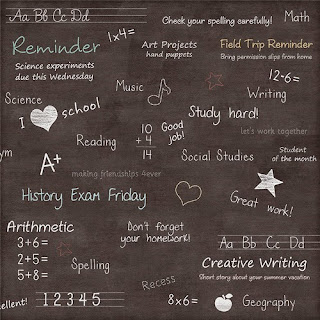 Aa Bb Cc Dd
Check your spelling carefully!
Math
Reminder
1x4=
Art Projects
hand puppets
Field Trip Reminder
Bring permission slips from home
Science experiments
due this Wednesday
12-6=
Science
Music
Writing
I
school
Study hard!
10
+ 4
14
Good
job!
let's work together
ym
Reading
A+
Social Studies
Student
of the month
making friendships 4ever
History Exam Friday
Great work!
Arithmetic
3+6=
2+5=
5+8=
Don't forget
your homework!
Aa Bb Cc Dd
Creative Writing
Short story about your summer vacation
Spelling
Recess
xcellent!
1 2 3 4 5
8x6=
Geography